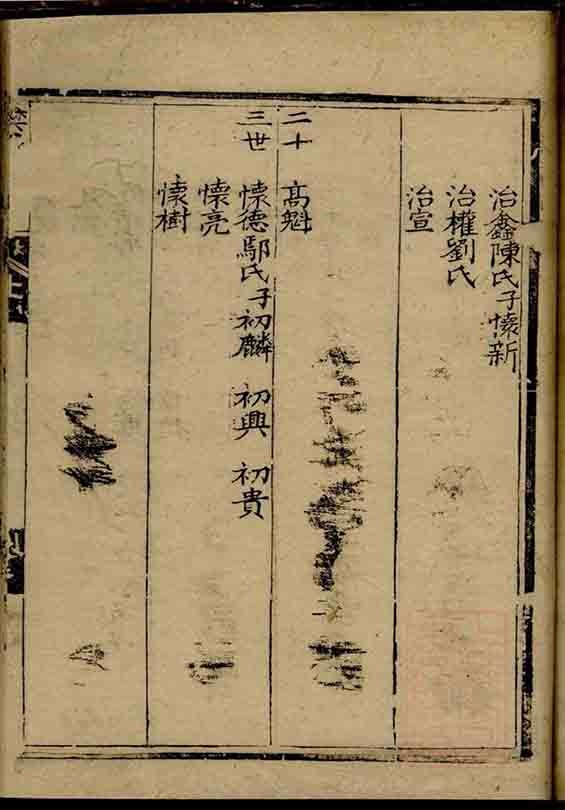 治鑫陳氏子懷新
治權劉氏
治宣
二十 高魁
三世 懷德鄢氏子初麟 初興 初貴
懷亮
懷樹